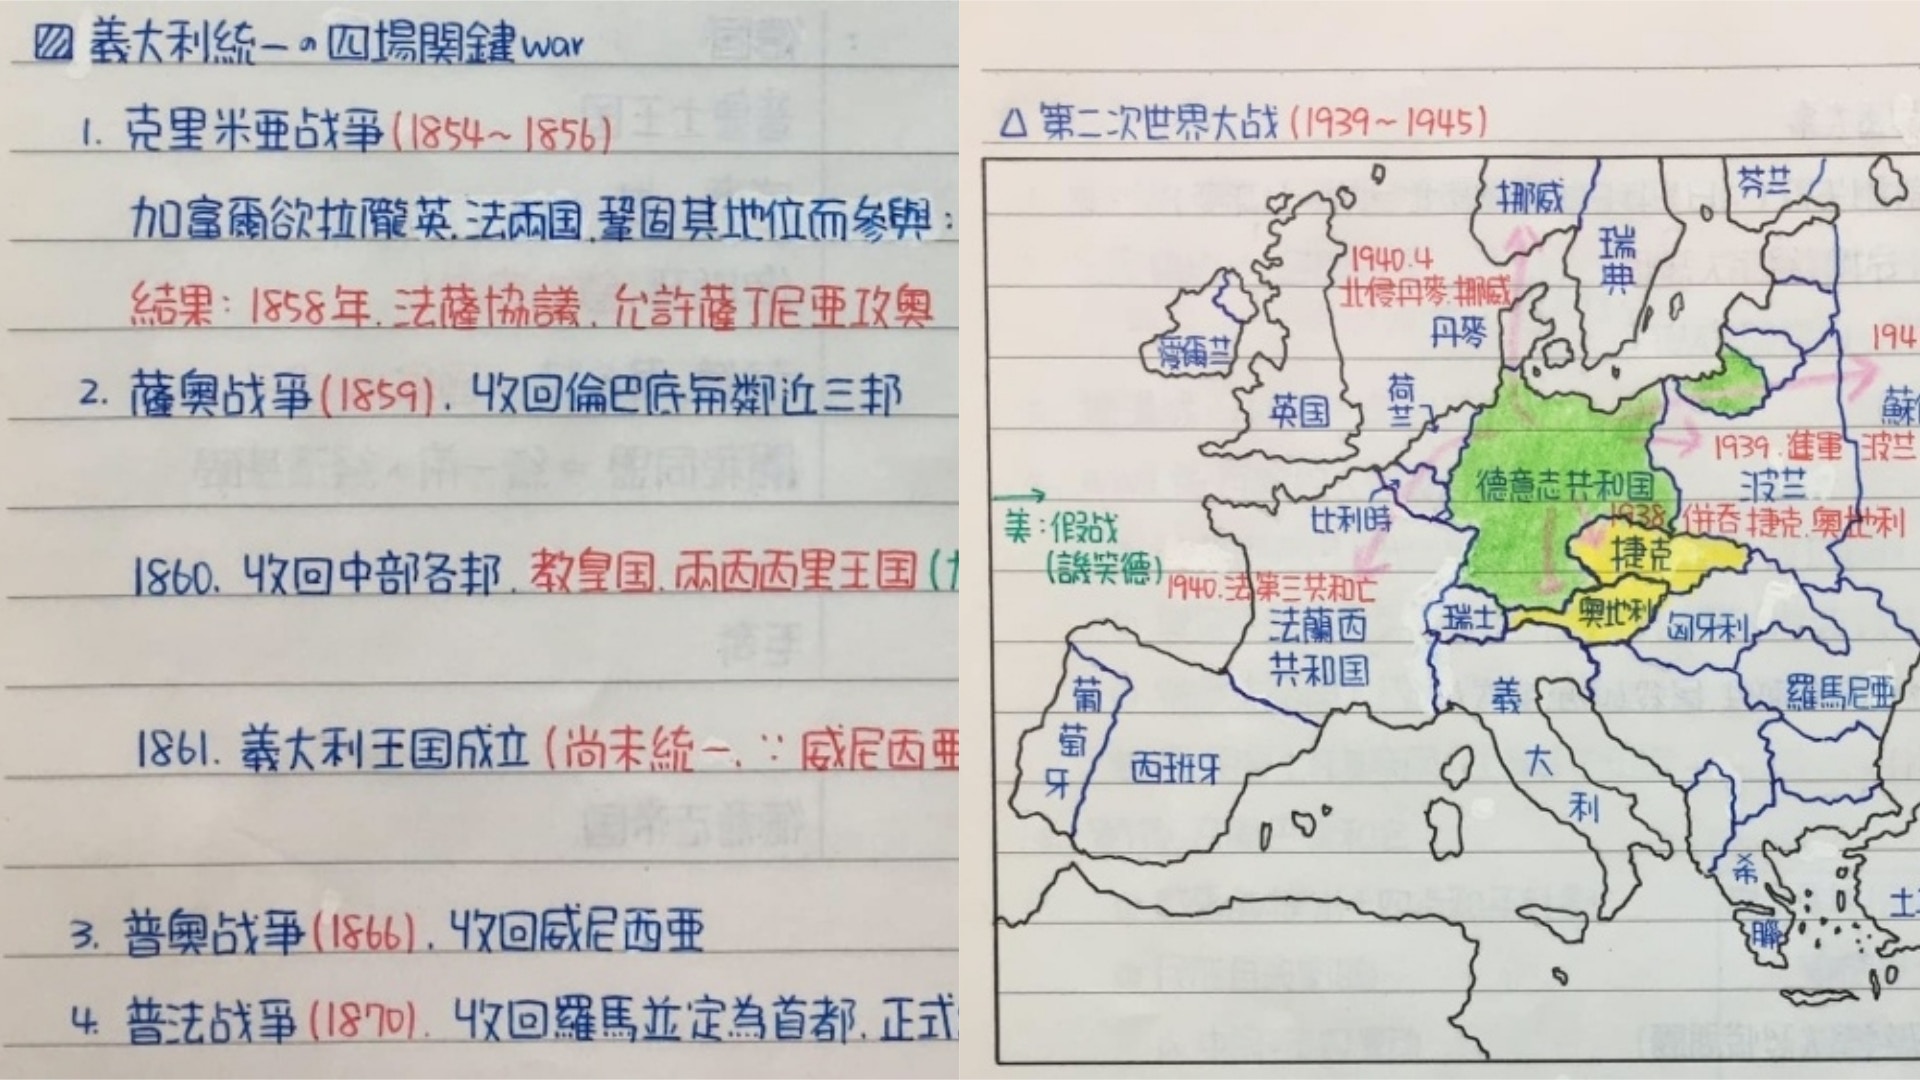 義大利統一の四場関鍵war
1. 克里米亜战爭(1854~1856)
加富爾欲拉隴英.法兩国.鞏固其地位而參與:
結果: 1858年.法薩協議.允許薩丁尼亜攻奧
2. 薩奧战爭(1859). 收回倫巴底毎鄰近三邦
1860. 收回中部各邦. 教皇国.兩西西里王国(
1861. 義大利王国成立(尚未統一.∵威尼西亜
3. 普奧战爭(1866). 收回威尼西亜
4. 普法战爭(1870). 收回羅馬並定為首都.正式
△ 第二次世界大战(1939~1945)
挪威
芬兰
瑞典
1940.4
北侵丹麥.挪威
丹麥
愛爾兰
194
蘇
荷兰
英国
1939.進軍 波兰
德意志共和国
波兰
比利時
1938.併吞捷克.奧地利
美:假战
(譏笑德)
捷克
1940.法第三共和亡
瑞士
奧地利
匈牙利
法蘭西
共和国
葡萄牙
義大利
羅馬尼亜
西班牙
希臘
土